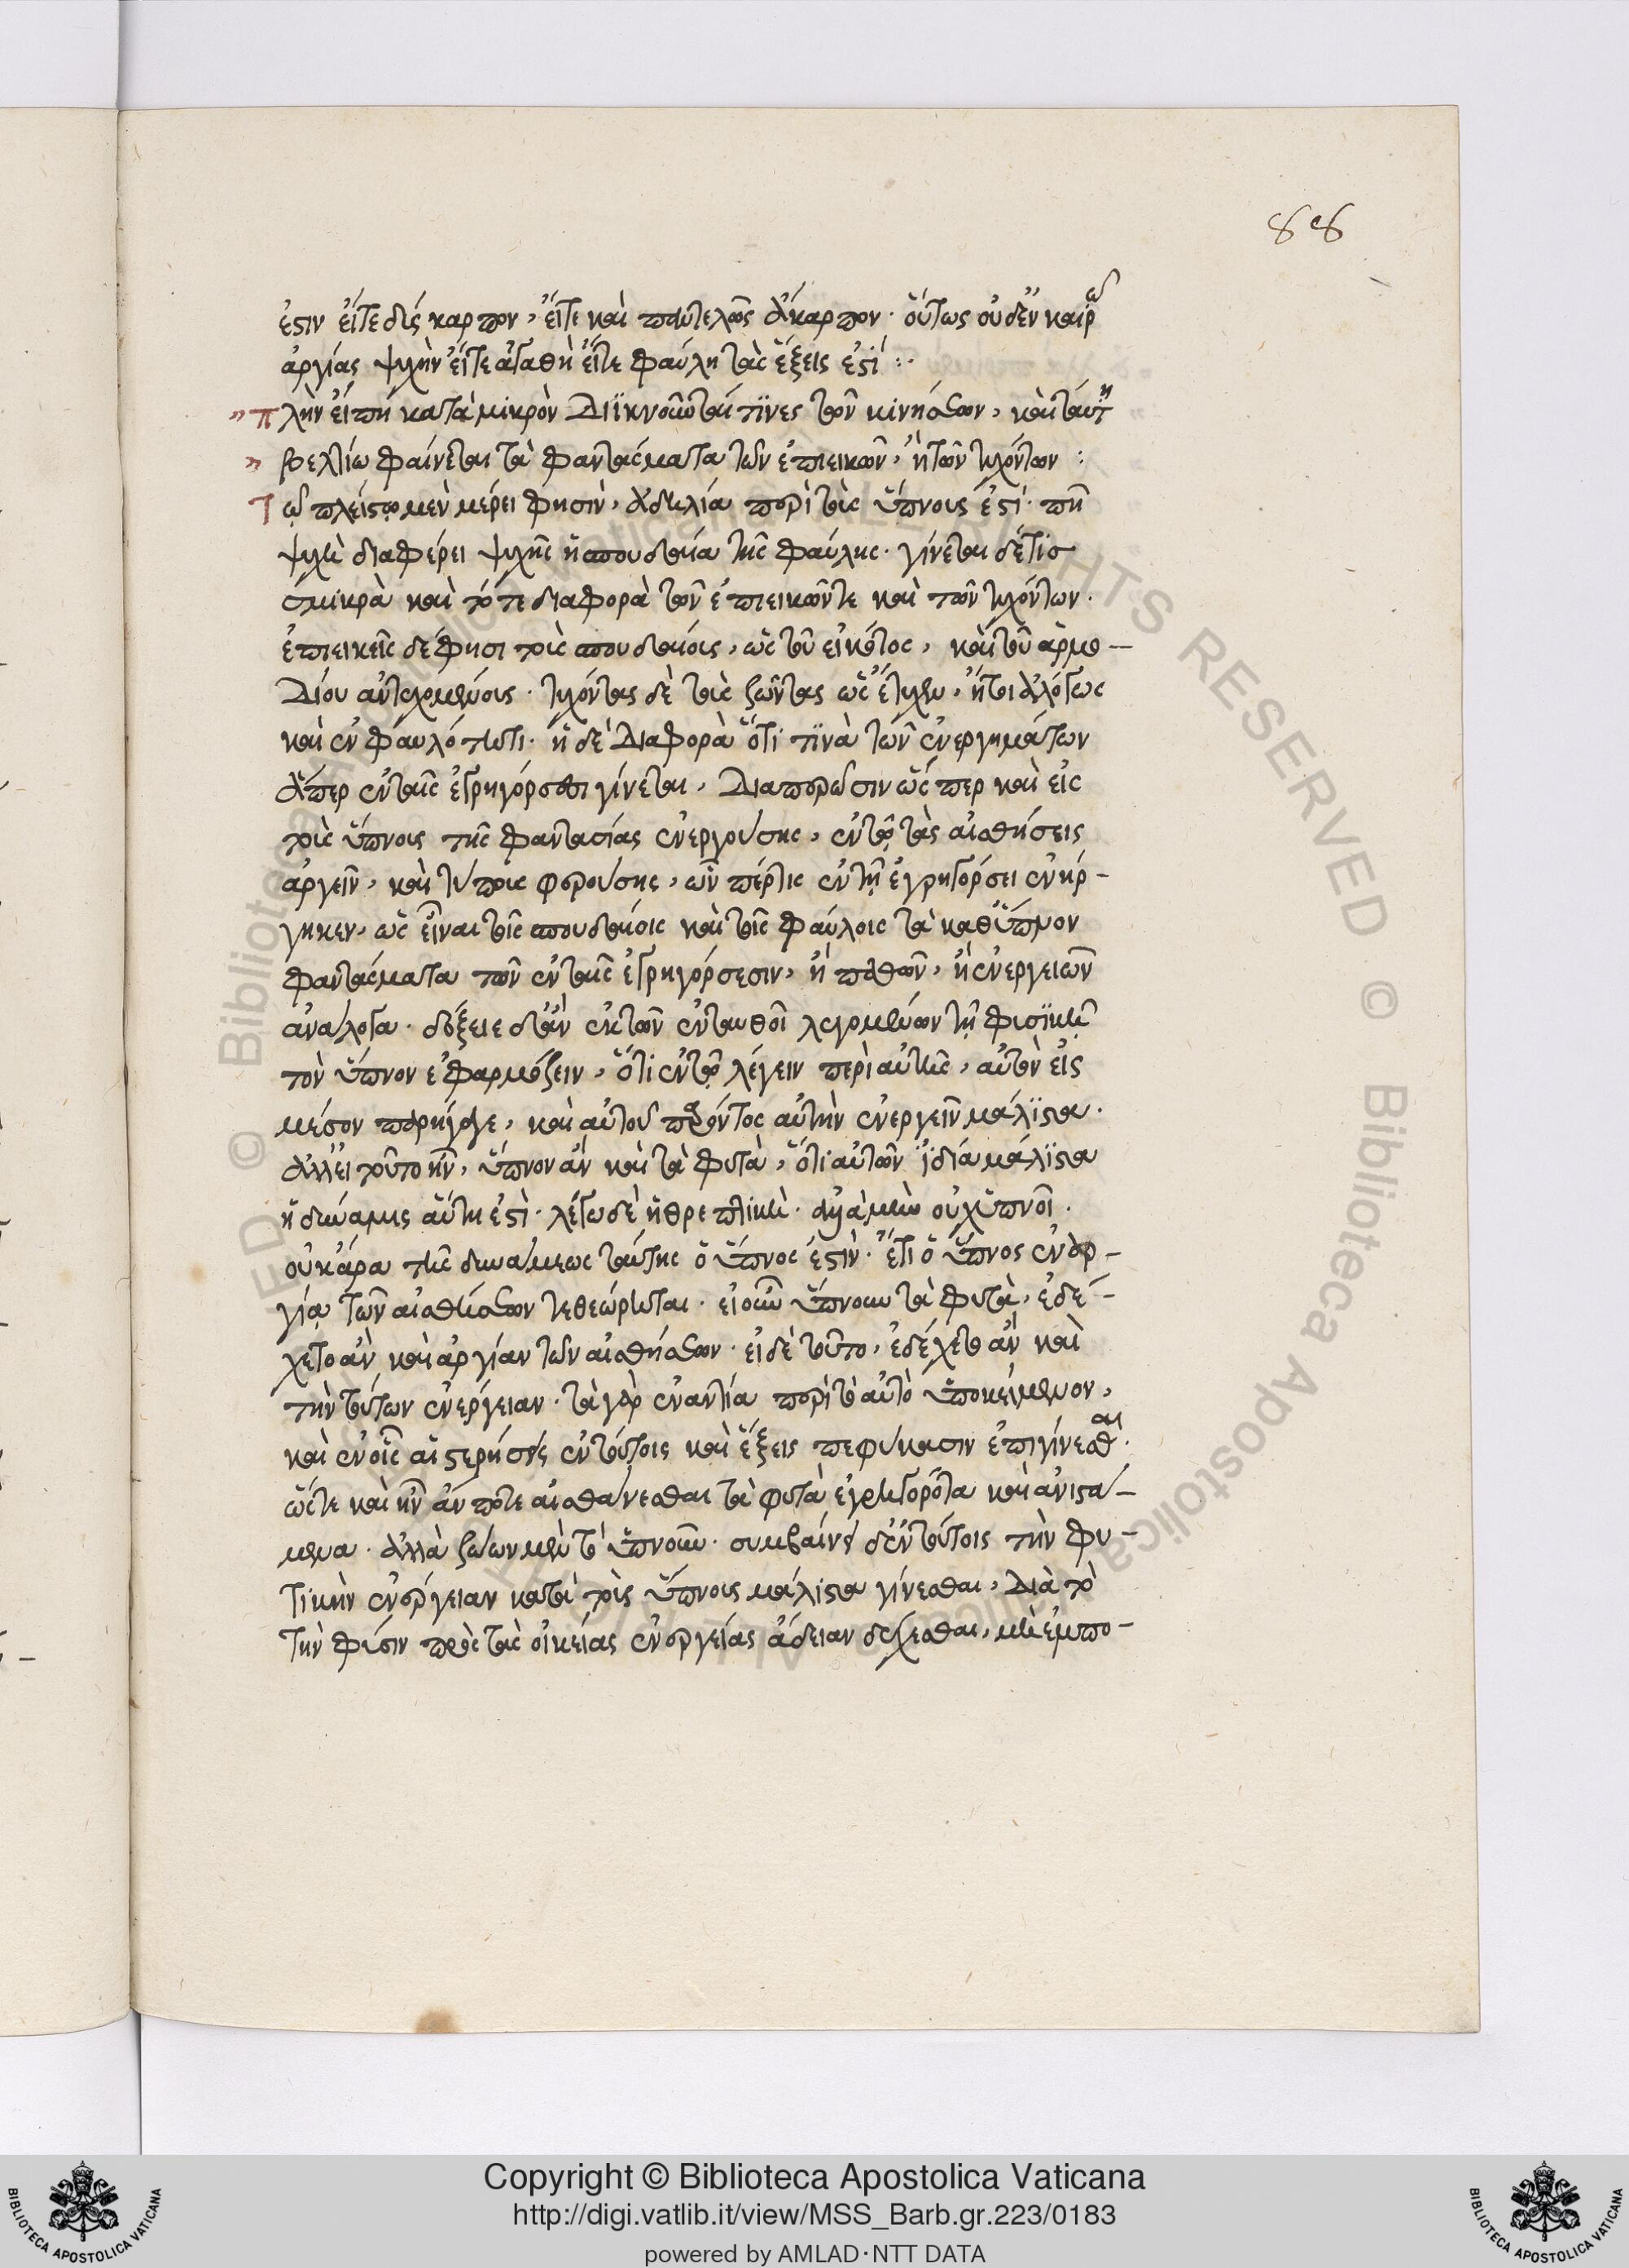 88
ἐστιν εἴτε δίς καρπον, εἴτε καὶ παντελῶς ἄκαρπον. οὕτως οὐδὲν καιρῷ
ἀργίας ψυχὴν εἴτε ἀγαθὴ εἴτε φαύλη τὰς ἕξεις ἐστί:
πλὴν εἴ πῃ κατὰ μικρὸν διϊκνοῦνται τινες τῶν κινήσεων, καὶ ταύτῃ
βελτίω φαίνεται τὰ φαντάσματα τῶν ἐπιεικῶν, ἢ τῶν τυχόντων:
Τῷ πλείστῳ μὲν μέρει φησὶν, ἀδηλία περὶ τοὺς ὕπνους ἐστί. πῆ
ψυχὴ διαφέρει ψυχῆς ἡ σπουδαία τῆς φαύλης. γίνεται δέ τις
σμικρὰ καὶ τότε διαφορὰ τῶν ἐπιεικῶν τε καὶ τῶν τυχόντων.
ἐπιεικεῖς δέ φησι τοὺς σπουδαίους, ὡς τοῦ εἰκότος, καὶ τοῦ ἁρμο-
δίου ἀντεχομένους. τυχόντας δὲ τοὺς ζῶντας ὡς ἔτυχεν, ἤτοι ἀλόγως
καὶ ἐν φαυλότητι. ἡ δὲ διαφορὰ ὅτι τινὰ τῶν ἐνεργημάτων
ἅπερ ἐν ταῖς ἐγρηγόρσεσι γίνεται, διαπορῶσιν ὥσπερ καὶ εἰς
τοὺς ὕπνους τῆς φαντασίας ἐνεργούσης, ἐν τῷ τὰς αἰσθήσεις
ἀργεῖν, καὶ τύπους φερούσης, ὧν πέρ τις ἐν τῇ ἐγρηγόρσει ἐνήρ-
γηκεν, ὡς εἶναι τοῖς σπουδαίοις καὶ τοῖς φαύλοις τὰ καθ' ὕπνον
φαντάσματα τῶν ἐν ταῖς ἐγρηγόρσεσιν, ἢ παθῶν, ἢ ἐνεργειῶν
ἀνάλογα. δόξειε δ' ἂν ἐκ τῶν ἐνταυθοῖ λεγομένων τῇ φυσικῇ
τὸν ὕπνον ἐφαρμόζειν, ὅτι ἐν τῷ λέγειν περὶ αὐτῆς, αὐτὸν εἰς
μέσον παρήγαγε, καὶ αὐτοῦ παρόντος αὐτὴν ἐνεργεῖν μάλιστα.
ἀλλ' εἰ τοῦτο ἦν, ὕπνουν ἂν καὶ τὰ φυτὰ, ὅτι αὐτῶν ἰδία μάλιστα
ἡ δύναμις αὕτη ἐστὶ. λέγω δὲ ἡ θρεπτικὴ. ἀλλὰ μὴν οὐχ ὑπνοῖ.
οὐκ ἄρα τῆς δυνάμεως ταύτης ὁ ὕπνος ἐστὶν. ἔτι ὁ ὕπνος ἐν ἀρ-
γίᾳ τῶν αἰσθήσεων τεθεώρηται. εἰ οὖν ὕπνουν τὰ φυτὰ, ἐδέ-
χετο ἂν καὶ ἀργίαν τῶν αἰσθήσεων. εἰ δὲ τοῦτο, ἐδέχετο ἂν καὶ
τὴν τούτων ἐνέργειαν. τὰ γὰρ ἐναντία περὶ τὸ αὐτὸ ὑποκείμενον,
καὶ ἐν οἷς αἱ στερήσεις ἐν τούτοις καὶ ἕξεις πεφύκασιν ἐπιγίνεσθαι.
ὥστε καὶ ἦν ἄν ποτε αἰσθάνεσθαι τὰ φυτὰ ἐγρηγορότα καὶ ἀνιστά-
μενα. ἀλλὰ ζώων μὲν τὸ ὑπνοῦν. συμβαίνει δ' ἐν τούτοις τὴν φυ-
τικὴν ἐνέργειαν κατὰ τοὺς ὕπνους μάλιστα γίνεσθαι, διὰ τὸ
τὴν φύσιν πρὸς τὰς οἰκείας ἐνεργείας ἄδειαν δέχεσθαι, μὴ ἐμπο-
Copyright © Biblioteca Apostolica Vaticana
http://digi.vatlib.it/view/MSS_Barb.gr.223/0183
powered by AMLAD·NTT DATA